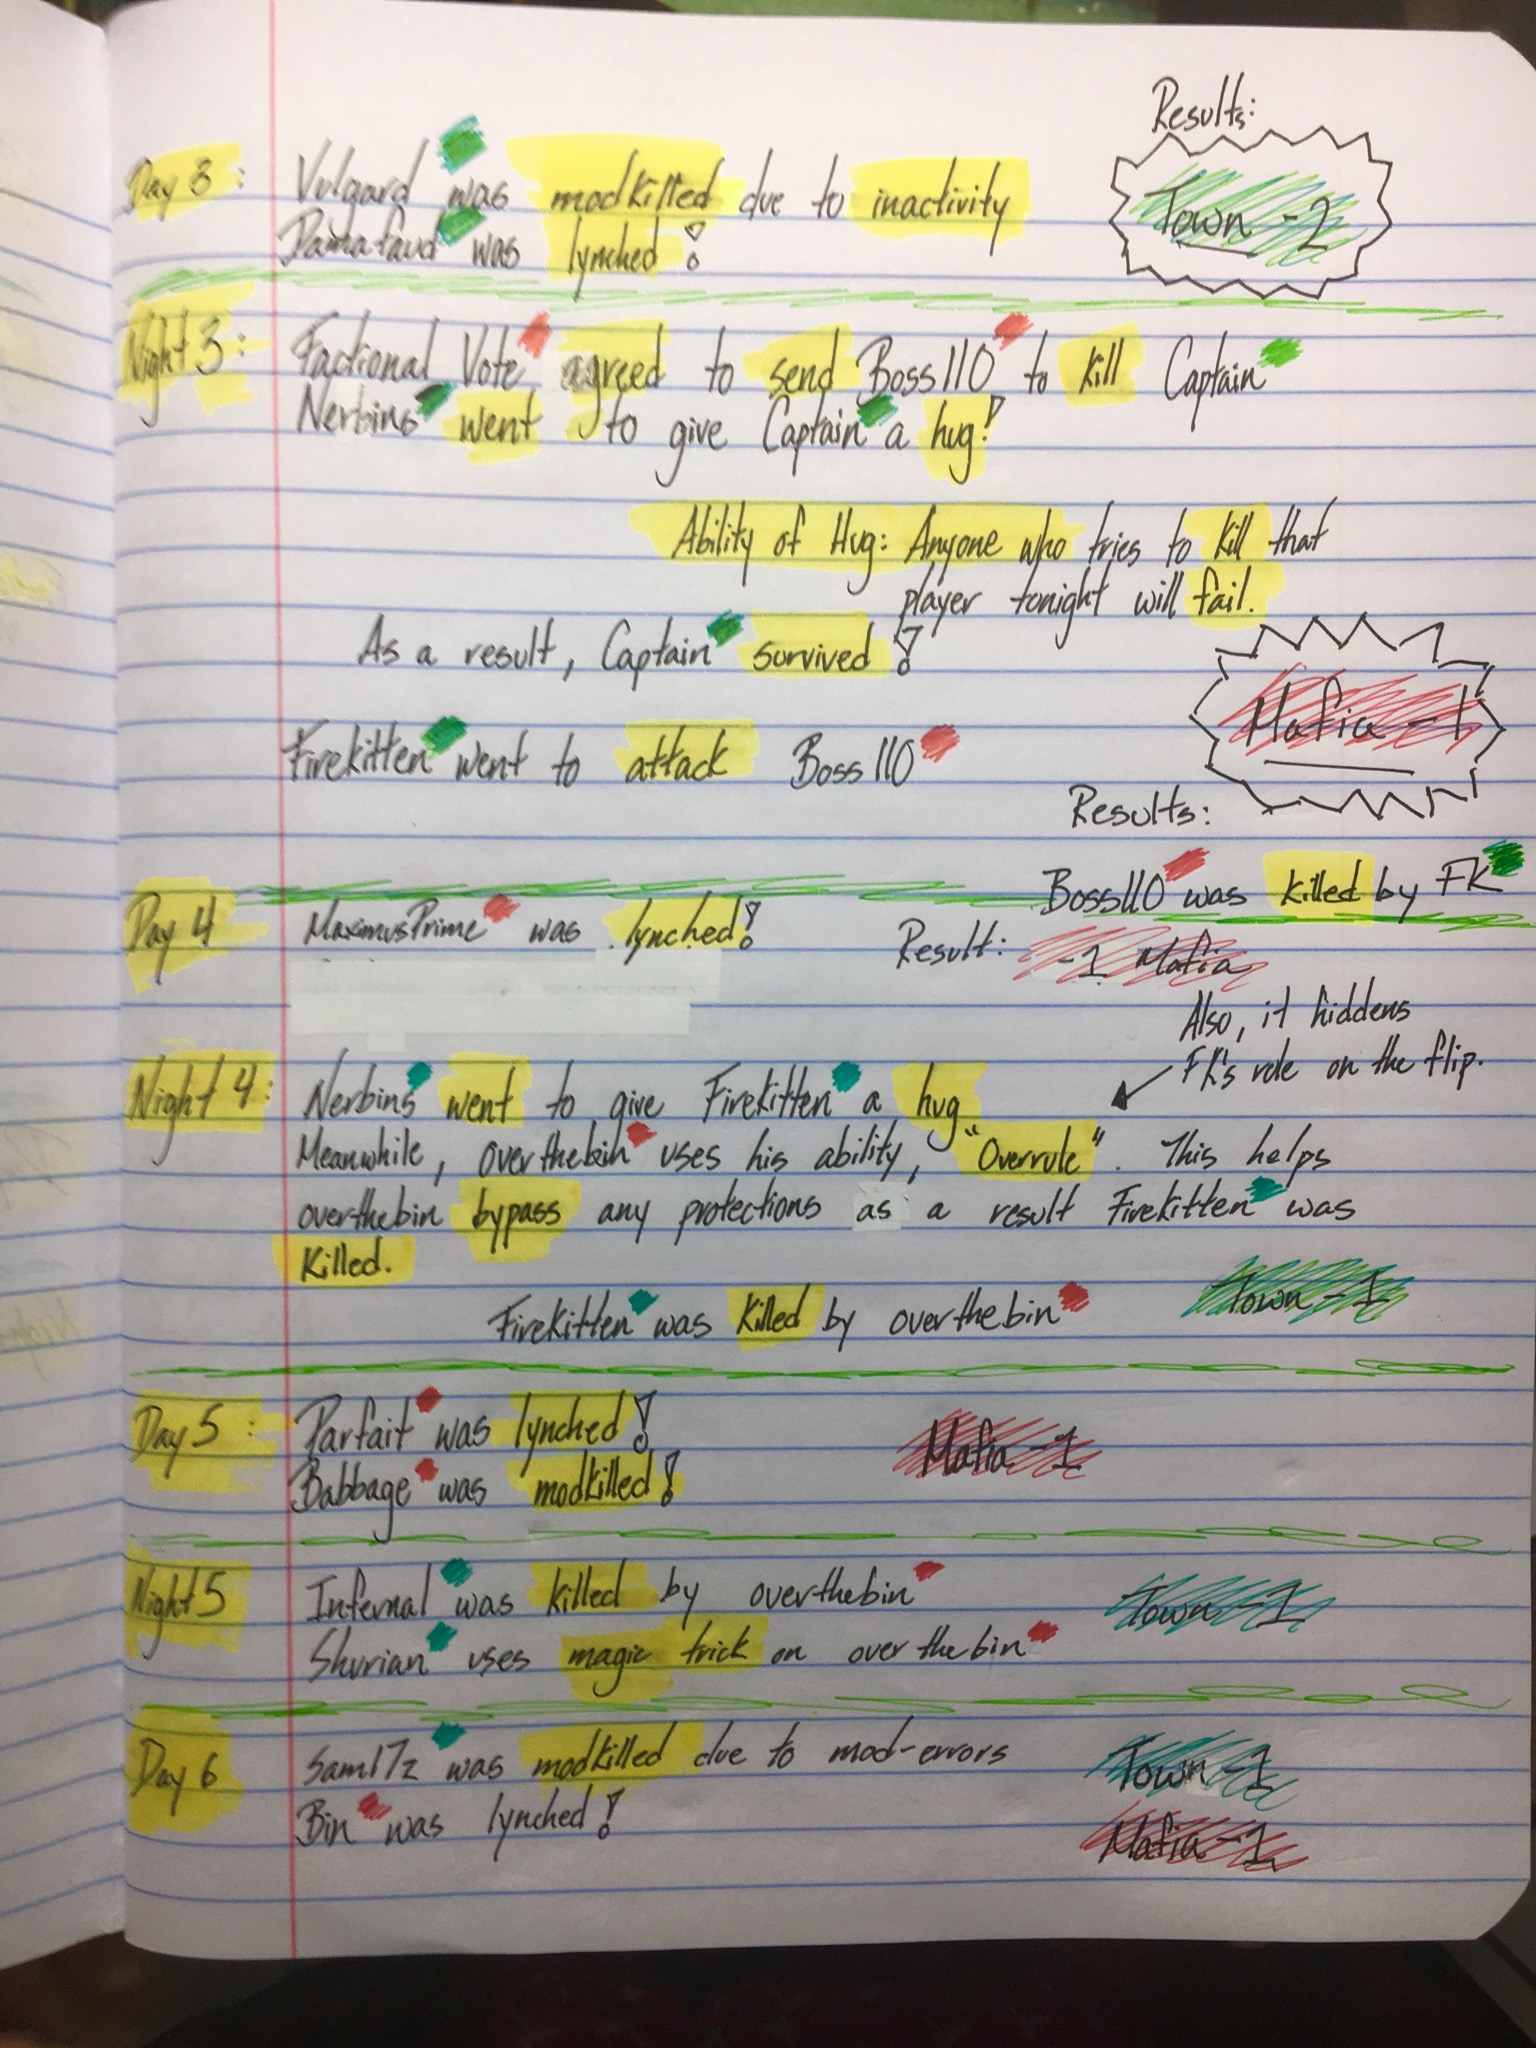 Results:
Day 3: Vulgard was modkilled due to inactivity
Damafaud was lynched!
Town -2
Night 3: Factional Vote agreed to send Boss110 to kill Captain
Nerbins went to give Captain a hug!
Ability of Hug: Anyone who tries to kill that
player tonight will fail.
As a result, Captain survived!
Mafia -1
Firekitten went to attack Boss110
Results:
Boss110 was killed by FK
Day 4 MaximusPrime was lynched! Result: -1 Mafia
Also, it hiddens
FK's role on the flip.
Night 4: Nerbins went to give Firekitten a hug
Meanwhile, overthebin uses his ability, "Overrule". This helps
overthebin bypass any protections as a result Firekitten was
killed.
Firekitten was killed by overthebin Town -1
Day 5: Parfait was lynched! Mafia -1
Babbage was modkilled!
Night 5 Infernal was killed by overthebin Town -1
Shurian uses magic trick on overthebin
Day 6 Sam17z was modkilled due to mod-errors Town -1
Bin was lynched! Mafia -1